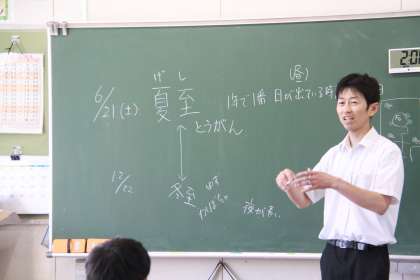 げし
(昼)
6/21(土) 夏至 1年で1番 日が出ている時
とうがん
冬至 ゆず
かぼちゃ
夜が長い